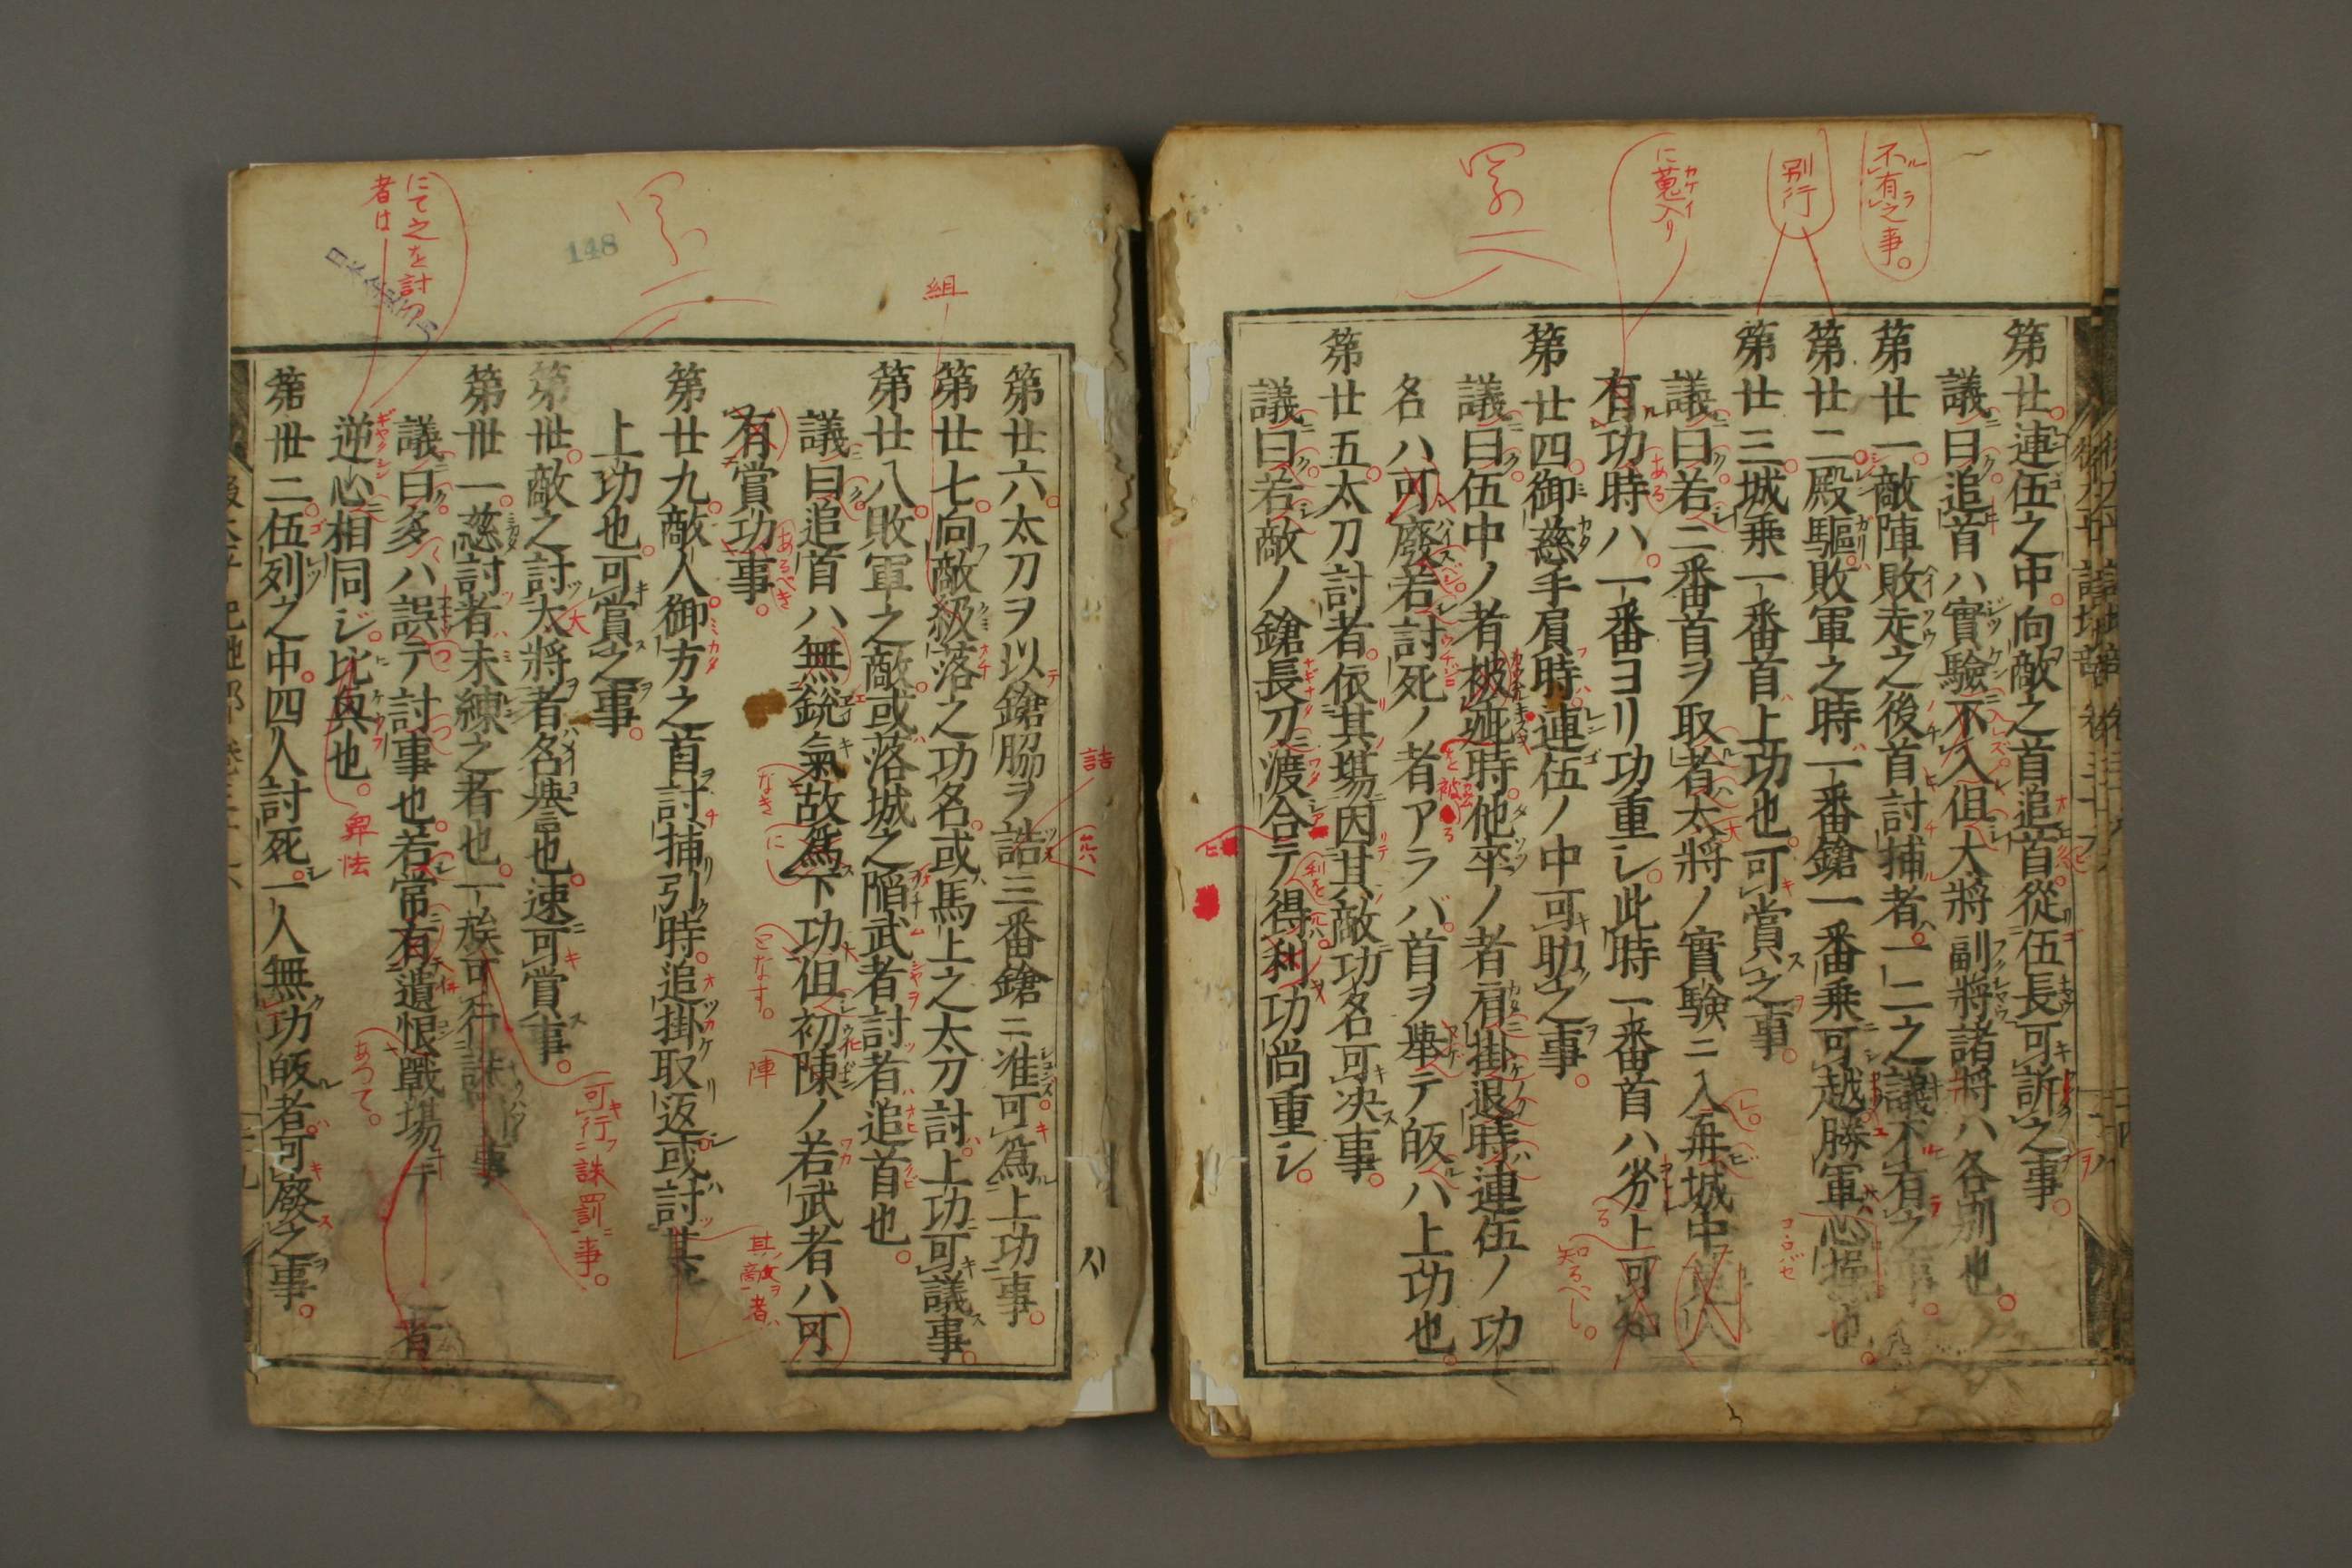 第廿連伍之中向敵之首追首從伍長可訴之事
議曰追首ハ實驗不入但大將副將諸將ハ各別也
第廿一敵陣敗走之後首討捕者一二之議不有之事
第廿二殿驅敗軍之時一番鎗一番乗可越勝軍
第廿三城乗一番首上功也可賞之事
議曰若二番首ヲ取者大將ノ實験ニ入毎城中
有功時ハ一番ヨリ功重シ此時一番首ハ劣上可知
第廿四御慈手肩時連伍ノ中可助之事
議曰伍中ノ者被疵時他卒ノ者肩掛退時連伍ノ功
名ハ可廢若討死ノ者アラバ首ヲ擧テ皈ハ上功也
第廿五太刀討者依其場因其敵功名可决事
議曰若敵ノ鎗長刀渡合テ得利功尚重シ
不有之事。
別行
に蒐入リ
あり
知るべし。
第廿六太刀ヲ以鎗脇ヲ詰三番鎗ニ准可爲上功事
第廿七向敵級落之功名或馬上之太刀討上功可議事
第廿八敗軍之敵或落城之陷武者討者追首也
議曰追首ハ無鋭氣故爲下功但初陳ノ若武者ハ可
有賞功事
第廿九敵人御方之首討捕引時追掛取返或討其
上功也可賞之事
第丗敵之討大將者名誉也速可賞事
第丗一慈討者未練之者也一族可行誅
議曰多ハ誤テ討事也若常有遺恨戰場
逆心相同ジ比興也
第丗二伍列之中四人討死一人無功皈者可廢之事
組
詰
あるべき
なき
にし
となす。
陣
其敵ヲ
者ハ
可行誅罰事。
あつて。
卑怯
にて之を討つ
者は
148